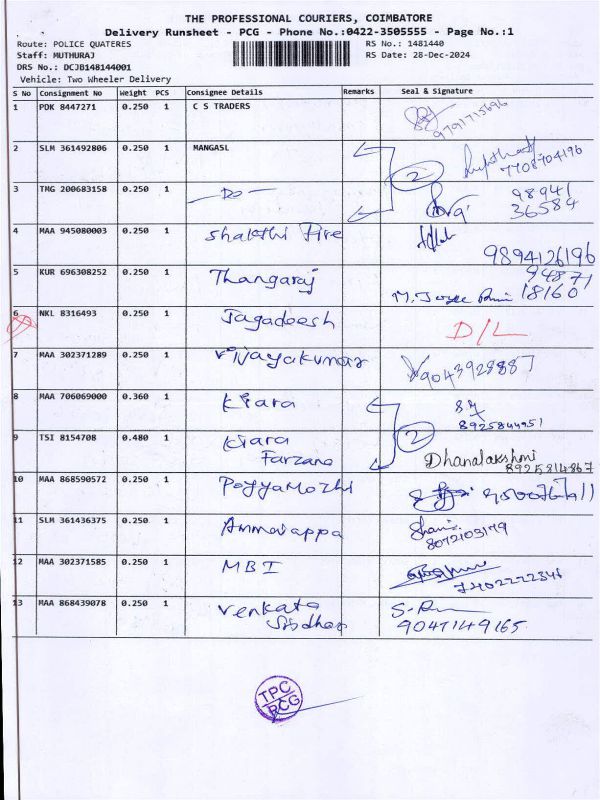 THE PROFESSIONAL COURIERS, COIMBATORE
Delivery Runsheet - PCG - Phone No.:0422-3505555 - Page No.:1
Route: POLICE QUATERES RS No.: 1481440
Staff: MUTHURAJ RS Date: 28-Dec-2024
DRS No.: DCJB148144001
Vehicle: Two Wheeler Delivery
S No Consignment No Weight PCS Consignee Details Remarks Seal & Signature
1 PDK 8447271 0.250 1 C S TRADERS 9791715696
2 SLM 361492806 0.250 1 MANGASL 7708704196
2
3 TMG 200683158 0.250 1 -Do- 98941
36584
4 MAA 945080003 0.250 1 Shakthi Fire 9894126196
5 KUR 696308252 0.250 1 Thangaraj 94871
18160
6 NKL 8316493 0.250 1 Jagadeesh D/L
7 MAA 302371289 0.250 1 Vijayakumar 9043928887
8 MAA 706069000 0.360 1 Kiara 8925844951
2
9 TSI 8154708 0.480 1 Kiara Dhanalakshmi
Farzana 8925814867
10 MAA 868590572 0.250 1
11 SLM 361436375 0.250 1 Ammaiappa
8072103179
12 MAA 302371585 0.250 1 MBI
7402222346
13 MAA 868439078 0.250 1 Venkata
9047149165
TPC
PCG